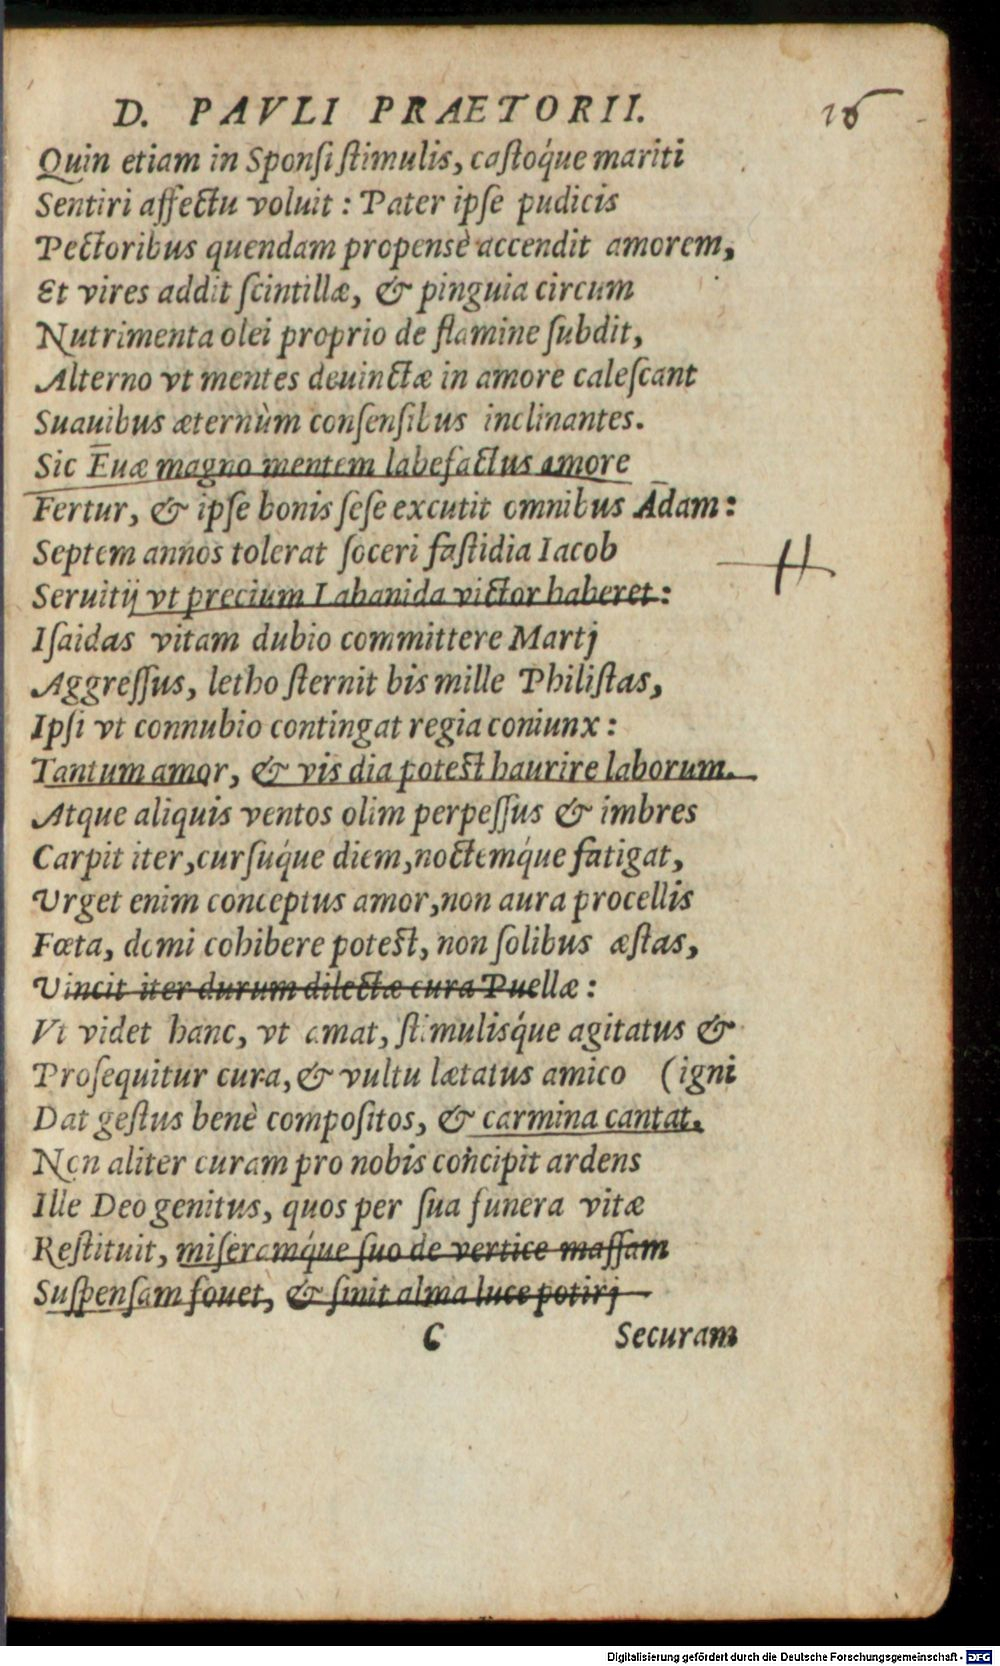 D. PAVLI PRAETORII. 16
Quin etiam in Sponsi stimulis, castóque mariti
Sentiri affectu voluit : Pater ipse pudicis
Pectoribus quendam propensè accendit amorem,
Et vires addit scintillæ, & pinguia circum
Nutrimenta olei proprio de flamine subdit,
Alterno vt mentes deuinctæ in amore calescant
Suauibus æternùm consensibus inclinantes.
Sic Euæ magno mentem labefactus amore
Fertur, & ipse bonis sese excutit omnibus Adam :
Septem annos tolerat soceri fastidia Iacob
Seruitij vt precium Labanida victor haberet :
Isaidas vitam dubio committere Martj
Aggressus, letho sternit bis mille Philistas,
Ipsi vt connubio contingat regia coniunx :
Tantum amor, & vis dia potest haurire laborum.
Atque aliquis ventos olim perpessus & imbres
Carpit iter, cursuq́ue diem, noctemq́ue fatigat,
Vrget enim conceptus amor, non aura procellis
Fœta, domi cohibere potest, non solibus æstas,
Vincit iter durum dilectæ cura Puellæ :
Vt videt hanc, vt amat, stimulisq́ue agitatus &
Prosequitur cura, & vultu lætatus amico (igni
Dat gestus benè compositos, & carmina cantat.
Non aliter curam pro nobis concipit ardens
Ille Deo genitus, quos per sua funera vitæ
Restituit, miseramq́ue suo de vertice massam
Suspensam fouet, & sinit alma luce potirj
C Securam
Digitalisierung gefördert durch die Deutsche Forschungsgemeinschaft - DFG